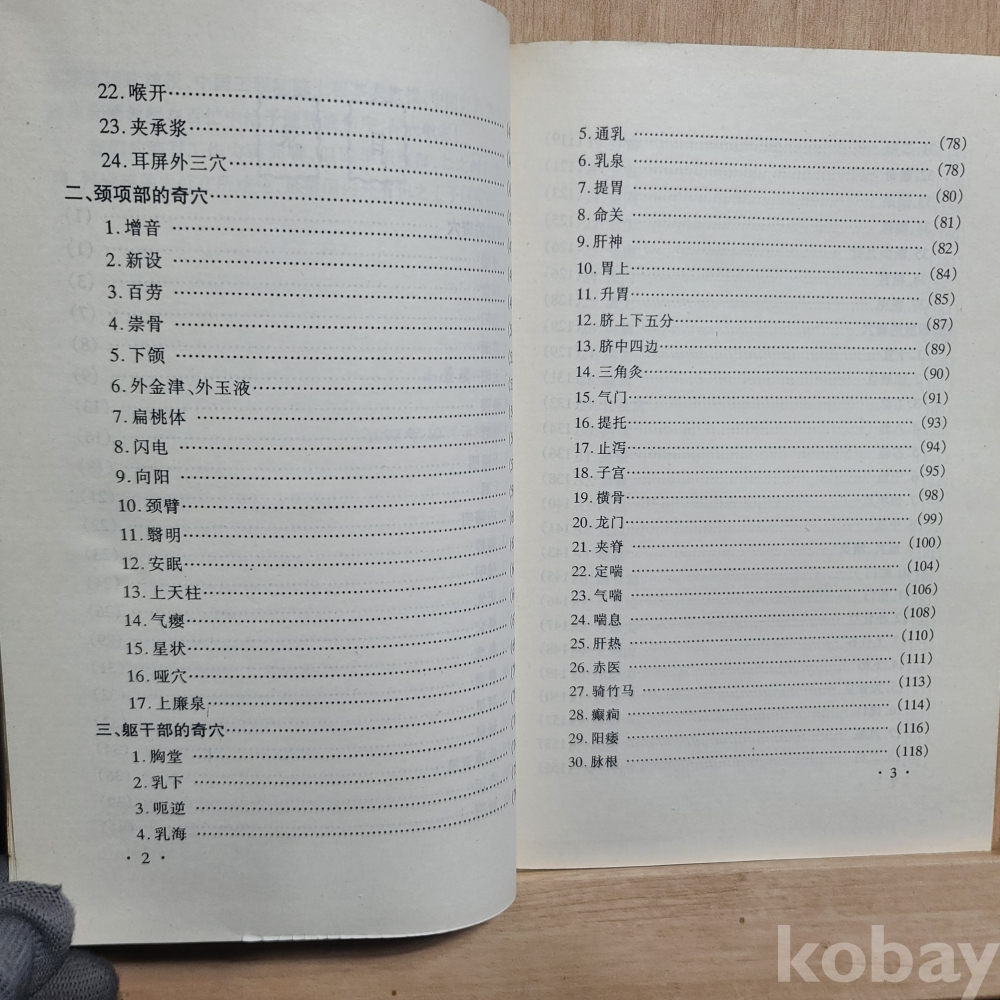 22.喉开 ……………………………
23.夹承浆 ……………………………
24.耳屏外三穴 ……………………………
二、颈项部的奇穴 ……………………………
1.增音 ……………………………
2.新设 ……………………………
3.百劳 ……………………………
4.崇骨 ……………………………
5.下颌 ……………………………
6.外金津、外玉液 ……………………………
7.扁桃体 ……………………………
8.闪电 ……………………………
9.向阳 ……………………………
10.颈臂 ……………………………
11.翳明 ……………………………
12.安眠 ……………………………
13.上天柱 ……………………………
14.气瘿 ……………………………
15.星状 ……………………………
16.哑穴 ……………………………
17.上廉泉 ……………………………
三、躯干部的奇穴 ……………………………
1.胸堂 ……………………………
2.乳下 ……………………………
3.呃逆 ……………………………
4.乳海 ……………………………
· 2 ·
5.通乳 …………………………… (78)
6.乳泉 …………………………… (78)
7.提胃 …………………………… (80)
8.命关 …………………………… (81)
9.肝神 …………………………… (82)
10.胃上 …………………………… (84)
11.升胃 …………………………… (85)
12.脐上下五分 …………………………… (87)
13.脐中四边 …………………………… (89)
14.三角灸 …………………………… (90)
15.气门 …………………………… (91)
16.提托 …………………………… (93)
17.止泻 …………………………… (94)
18.子宫 …………………………… (95)
19.横骨 …………………………… (98)
20.龙门 …………………………… (99)
21.夹脊 …………………………… (100)
22.定喘 …………………………… (104)
23.气喘 …………………………… (106)
24.喘息 …………………………… (108)
25.肝热 …………………………… (110)
26.赤医 …………………………… (111)
27.骑竹马 …………………………… (113)
28.癫痫 …………………………… (114)
29.阳痿 …………………………… (116)
30.脉根 …………………………… (118)
· 3 ·
kobay